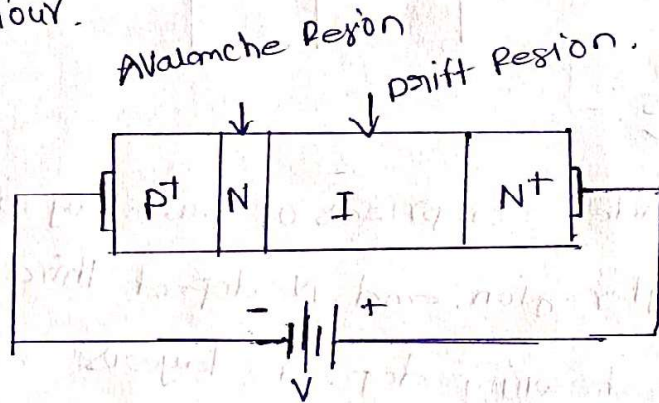 iour.
Avalanche Resion
Drift Resion.
P+ N I N+
- +
V